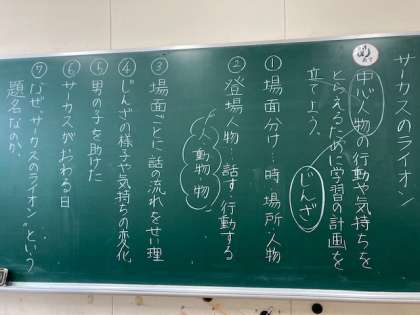 サーカスのライオン
めあて
中心人物の行動や気持ちを
とらえるために学習の計画を
立てよう。
じんざ
① 場面分け…時・場所・人物
② 登場人物…話す・行動する
人動物・物
③ 場面ごとに話の流れをせい理
④ じんざの様子や気持ちの変化
⑤ 男の子を助けた
⑥ サーカスがおわる日
⑦ なぜ“サーカスのライオン”という
題名なのか。